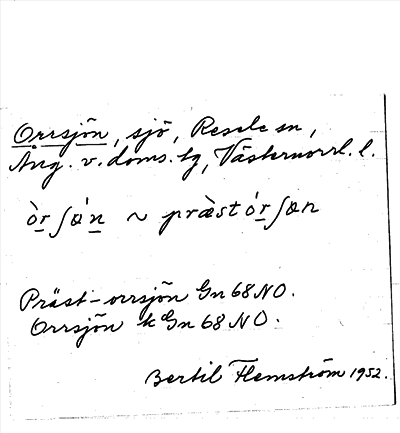 Orrsjön, sjö, Resele sn,
Ång. v. doms. tg, Västernorrl. l.
òr̲ʃớn̲ ~ præ̀stór̲ʃøn
Präst-orrsjön Gn 68 NO.
Orrsjön k Gn 68 NO.
Bertil Flemström 1952.